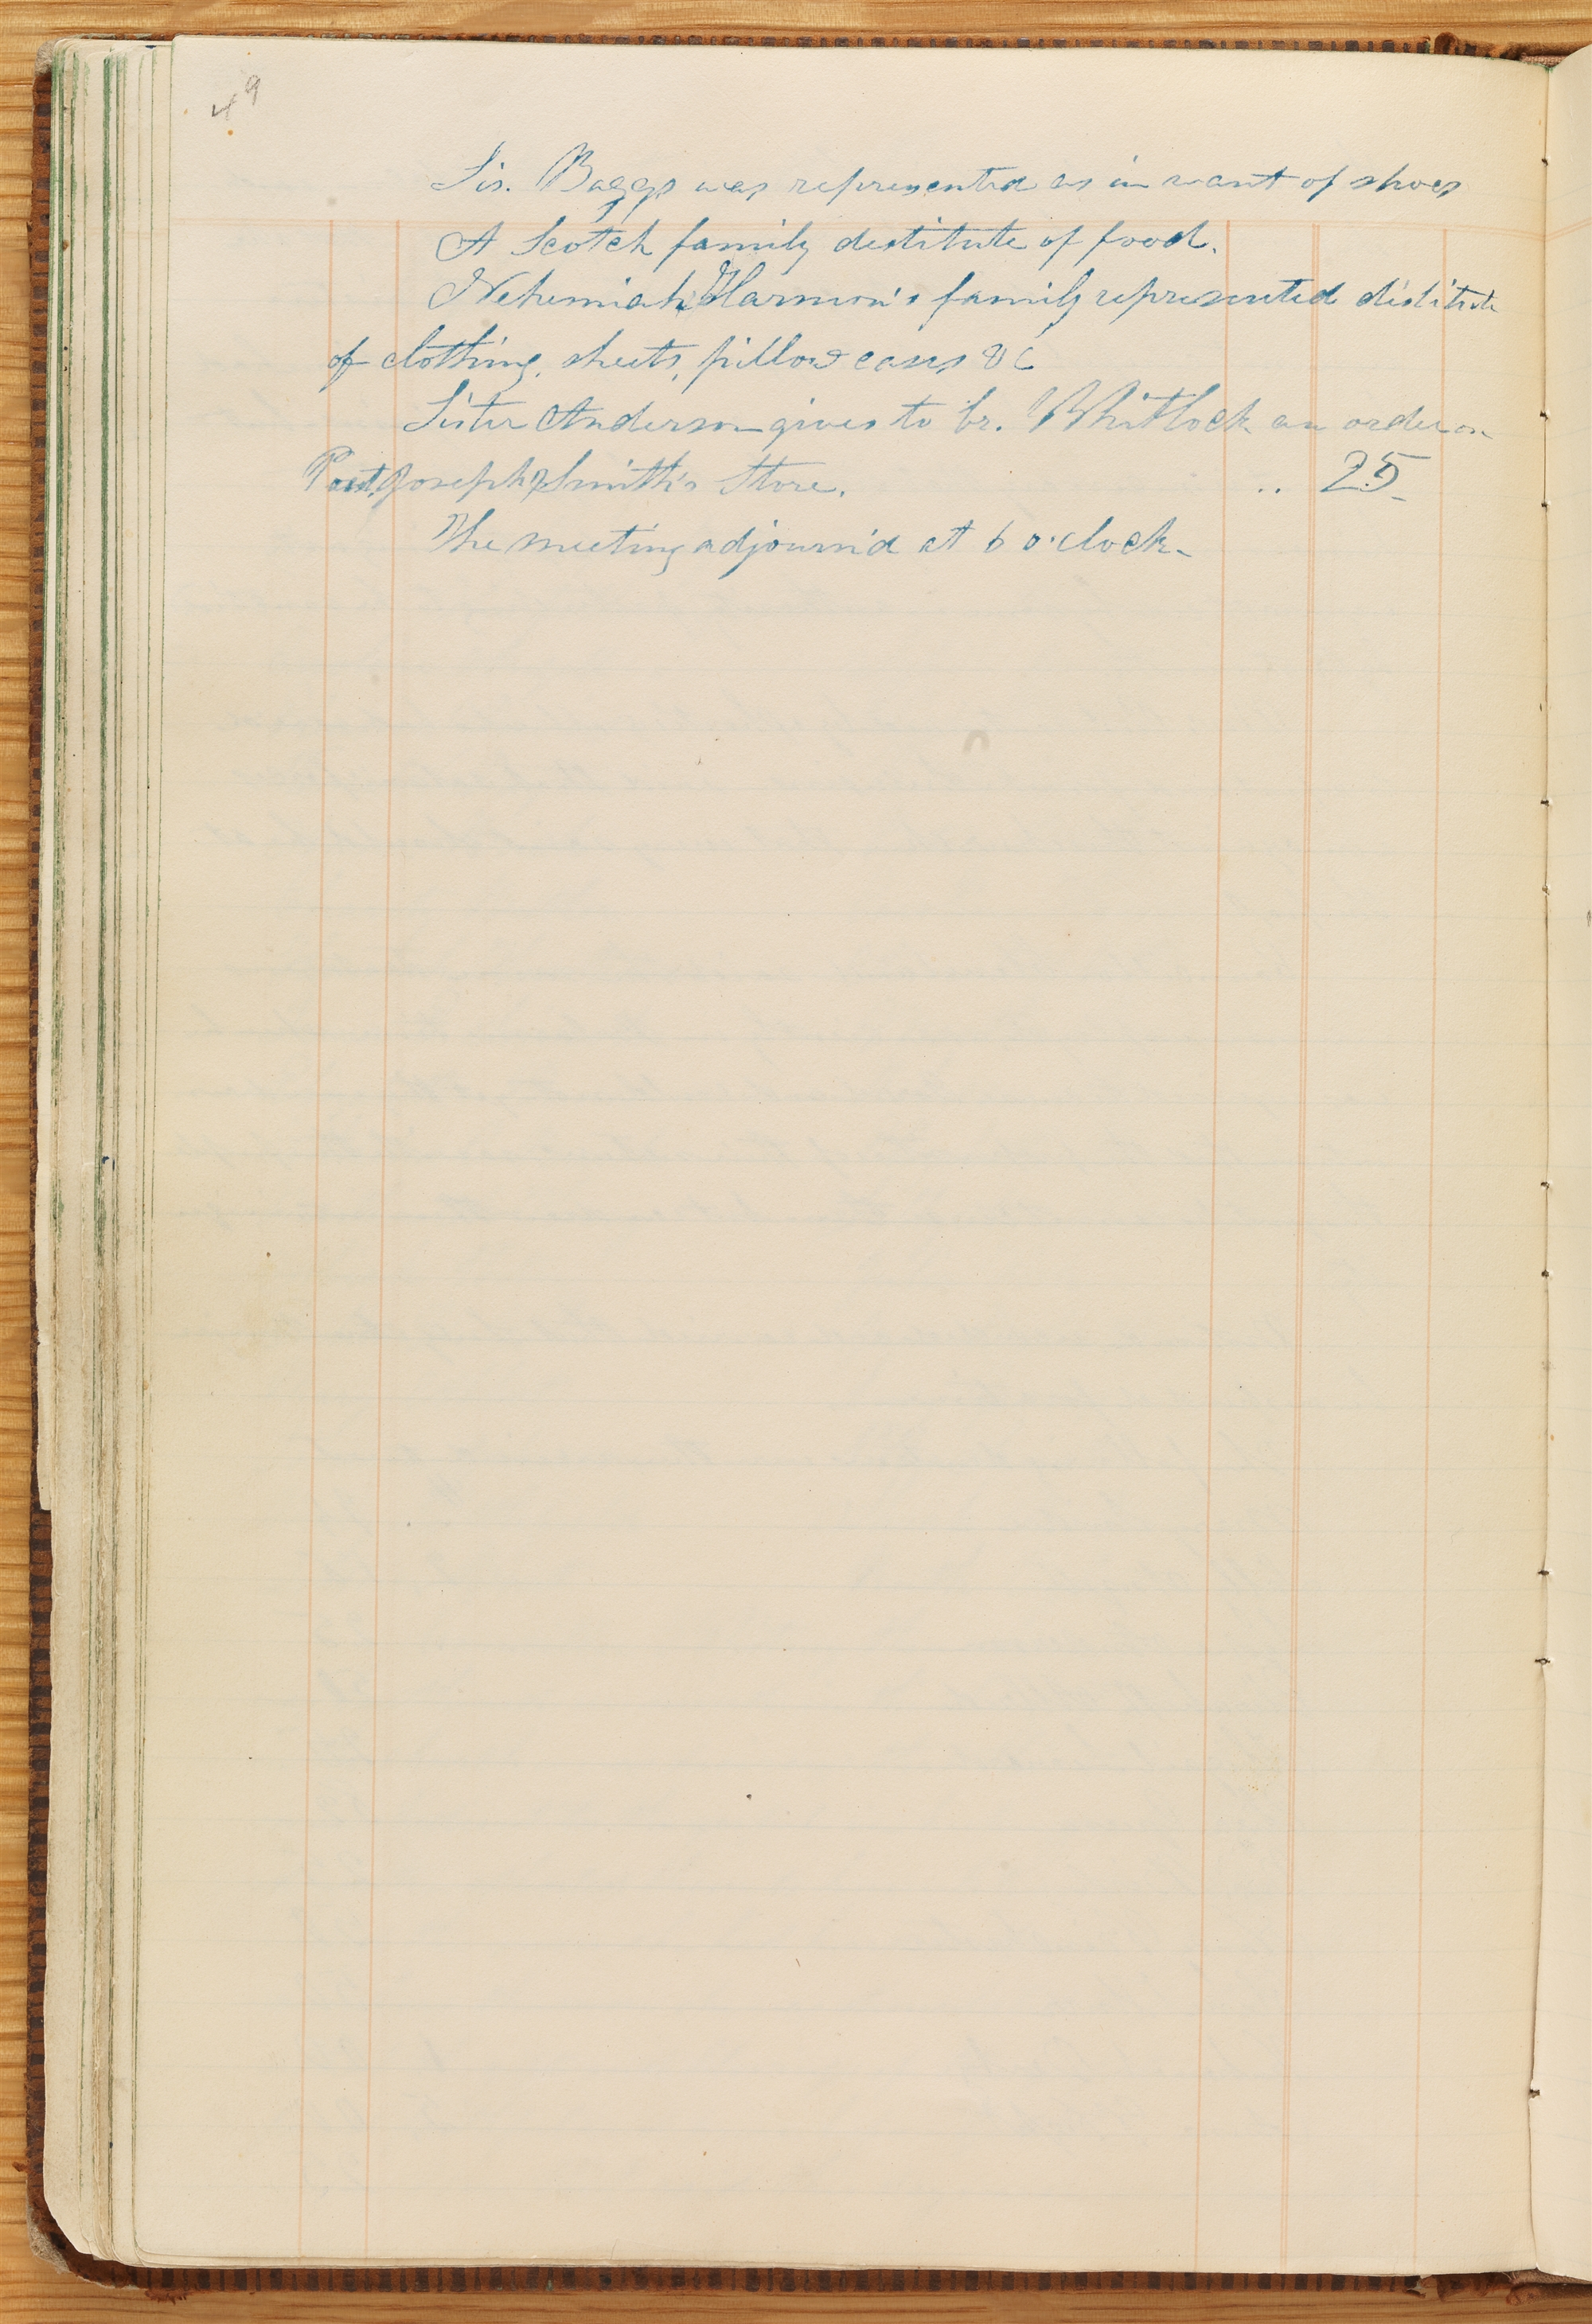 49
Sis. Baggs was represented as in want of shoes
A Scotch family destitute of food.
Nehemiah Harmon's family represented distitute
of clothing, sheets, pillow cases &C
Sister Anderson gives to br. Whitlock an order on
Prest Joseph Smith's Store. .. 25
The meeting adjourn'd at 6 o'clock-